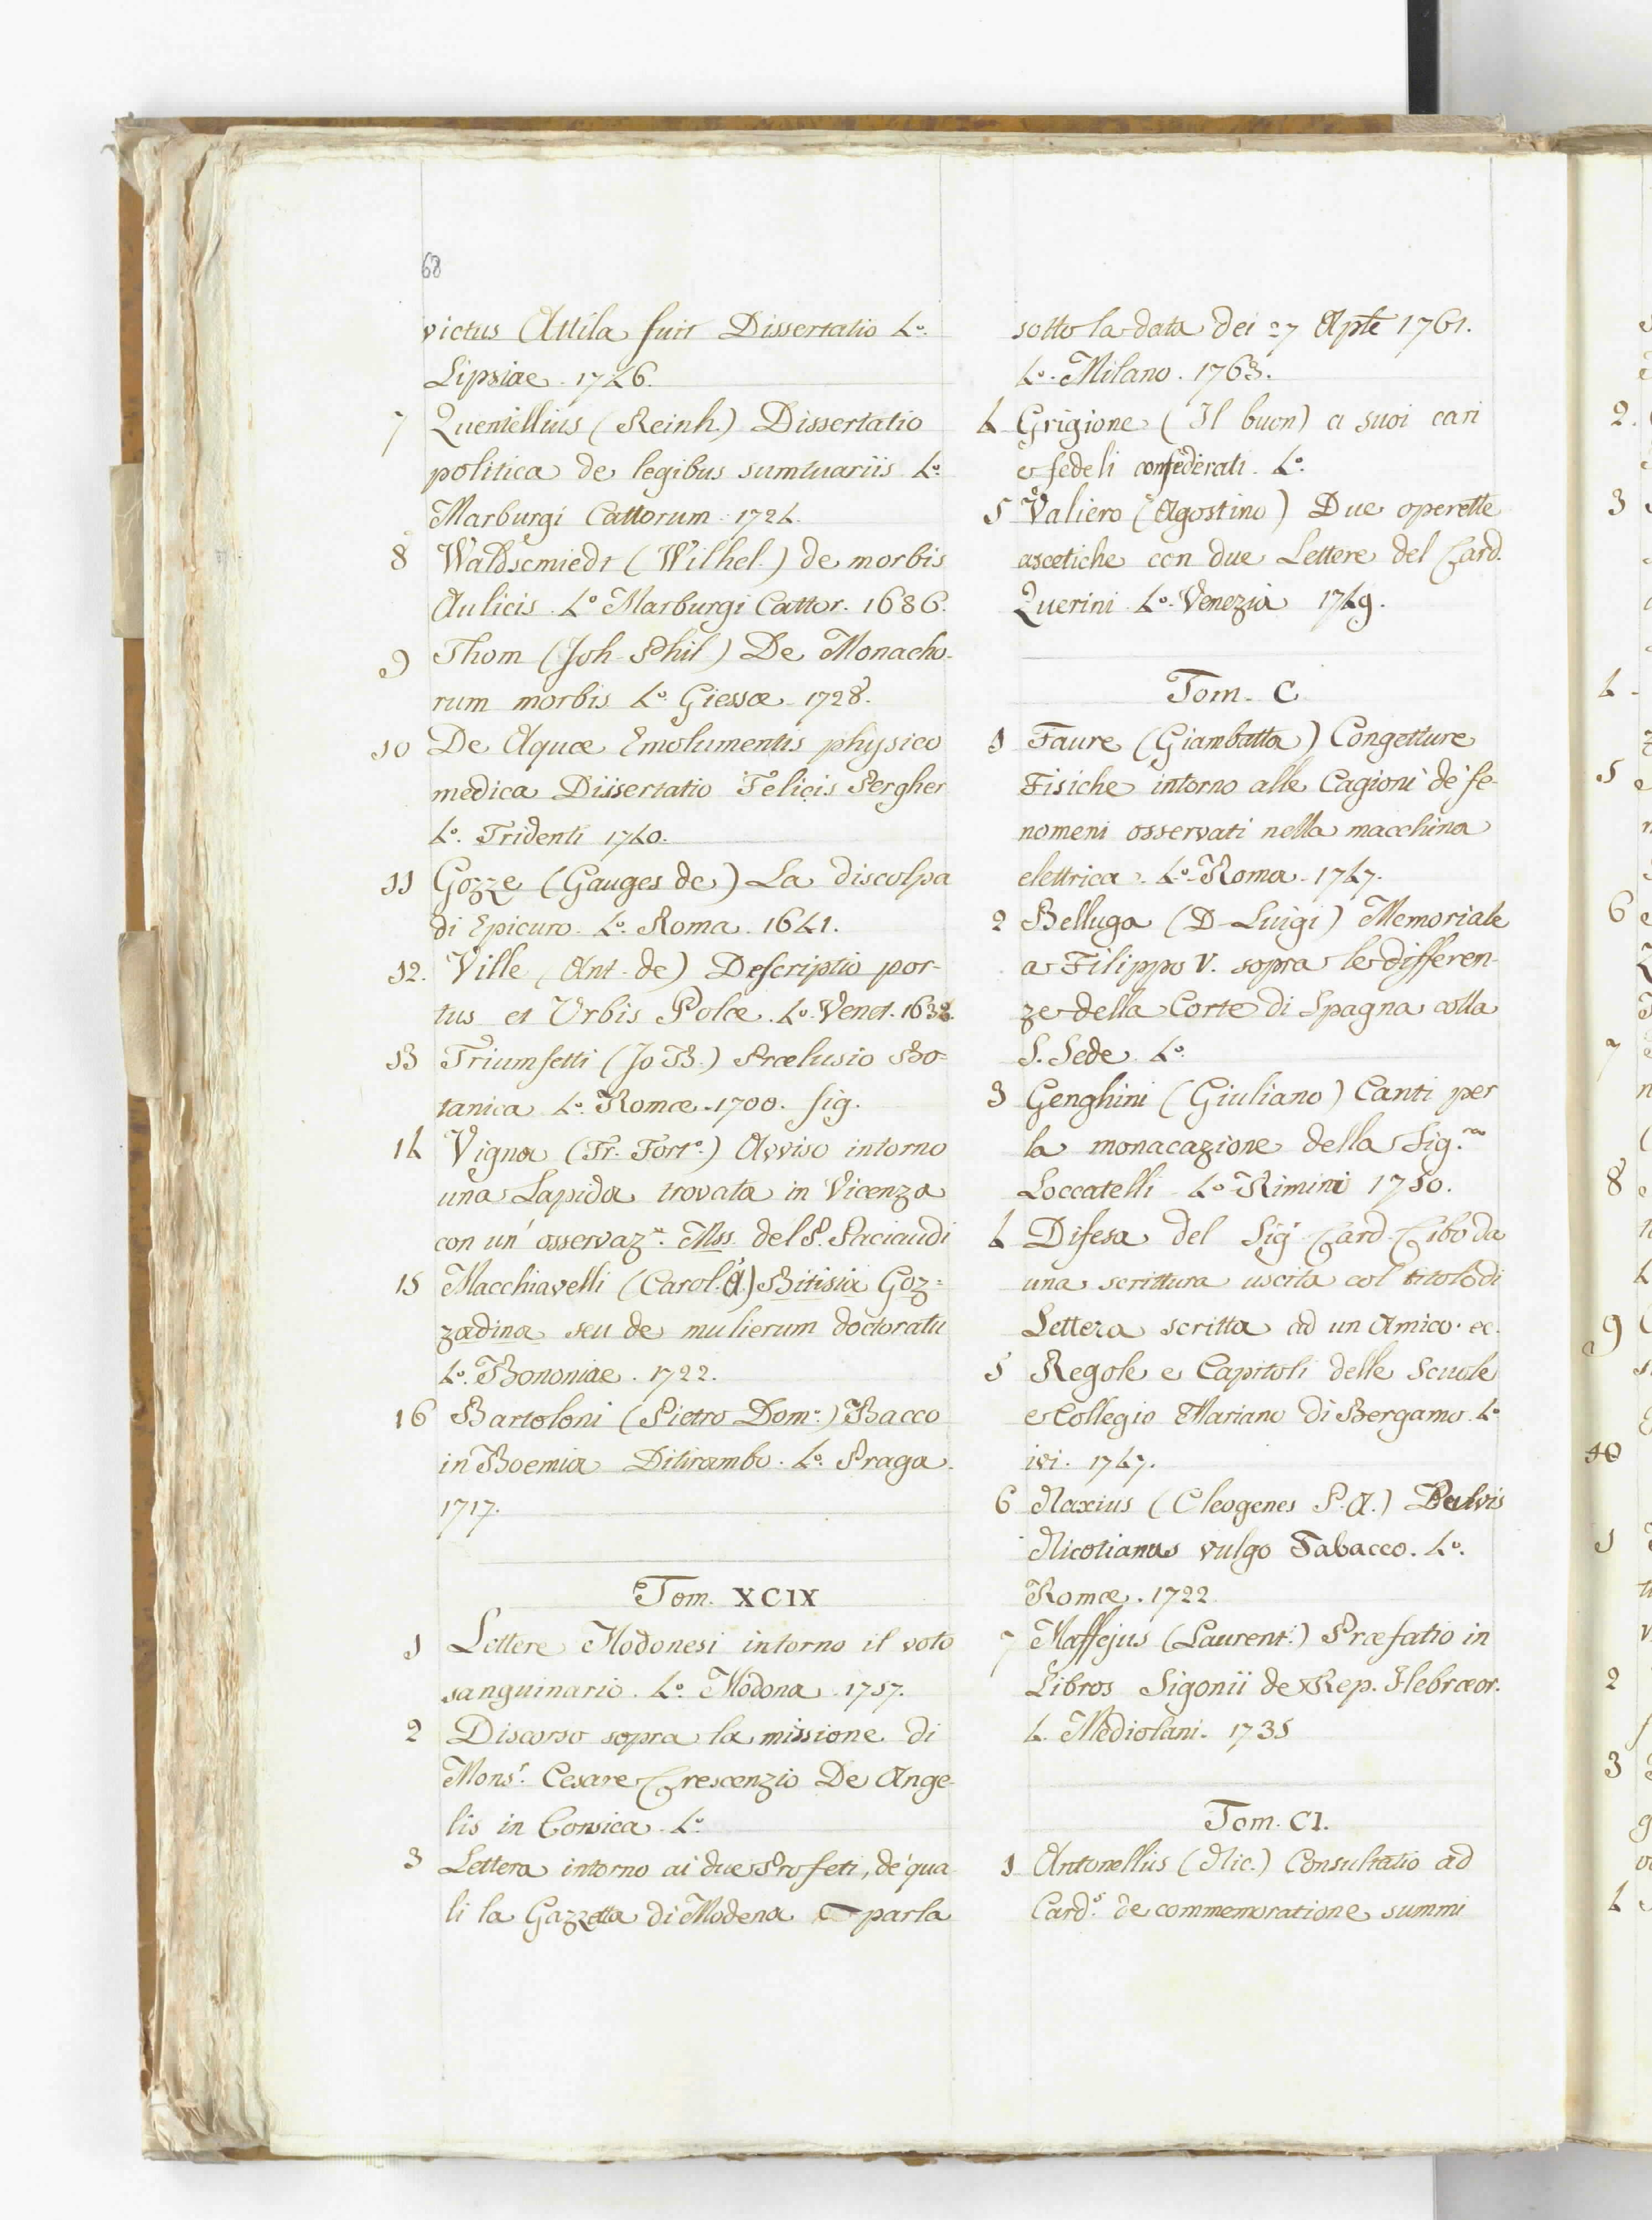 68
victus Attila fuit Dissertatio 4.º
Lipsiae. 1746.
7 Quentellius (Reinh.) Dissertatio
politica de legibus sumtuariis 4.º
Marburgi Cattorum. 1724.
8 Waldscmiedt (Wilhel.) de morbis
Aulicis. 4.º Marburgi Cattor. 1686.
9 Thom (Joh. Phil) De Monacho-
rum morbis 4.º Giessæ. 1728.
10 De Aquæ Emolumentis physico
medica Dissertatio Felicis Pergher
4.º Tridenti 1740.
11 Gozze (Gauges de) La discolpa
di Epicuro. 4.º Roma. 1641.
12. Ville (Ant. de) Descriptio por-
tus et Urbis Polæ. 4.º Venet. 1633.
13 Triumfetti (Jo B.) Prælusio Bo-
tanica 4.º Romæ. 1700. fig.
14 Vigna (Fr. Fort.º) Avviso intorno
una Lapida trovata in Vicenza
con un' osservaz.ne Mss. del P. Paciaudi
15 Macchiavelli (Carol. A.) Bitisia Goz=
zadina seu de mulierum doctoratu
4.º Bononiae. 1722.
16 Bartoloni (Pietro Dom.º) Bacco
in Boemia Ditirambo. 4.º Praga.
1717.
Tom. XCIX
1 Lettere Modonesi intorno il voto
sanguinario. 4.º Modona. 1757.
2 Discorso sopra la missione di
Mons.r Cesare Crescenzio De Ange-
lis in Corsica. 4.º
3 Lettera intorno ai due Profeti, de' qua-
li la Gazzetta di Modena parla
sotto la data dei 27 Aple 1761.
4.º Milano. 1763.
4 Grigione (Il buon) a suoi cari
e fedeli confederati. 4.º
5 Valiero (Agostino) Due operette
ascetiche con due Lettere del Card.
Querini. 4.º Venezia 1749.
Tom. C
1 Faure (Giambatta) Congetture
Fisiche intorno alle Cagioni de' fe-
nomeni osservati nella macchina
elettrica. 4.º Roma. 1747.
2 Belluga (D. Luigi) Memoriale
a Filippo V. sopra le differen-
ze della Corte di Spagna colla
S. Sede. 4.º
3 Genghini (Giuliano) Canti per
la monacazione della Sig.ra
Loccatelli 4.º Rimini 1750.
4 Difesa del Sig.r Card. Cibo da
una scrittura uscita col titolo di
Lettera scritta ad un Amico. ec.
5 Regole e Capitoli delle Scuole
e Collegio Mariano di Bergamo. 4.º
ivi. 1747.
6 Naxius (Cleogenes P. A.) Pulvis
Nicotianus vulgo Tabacco. 4.º
Romæ. 1722.
7 Maffejus (Laurent.) Præfatio in
Libros Sigonii de Rep. Hebræor.
4. Mediolani. 1735
Tom. CI.
1 Antonellus (Nic.) Consultatio ad
Card.s de commemoratione summi